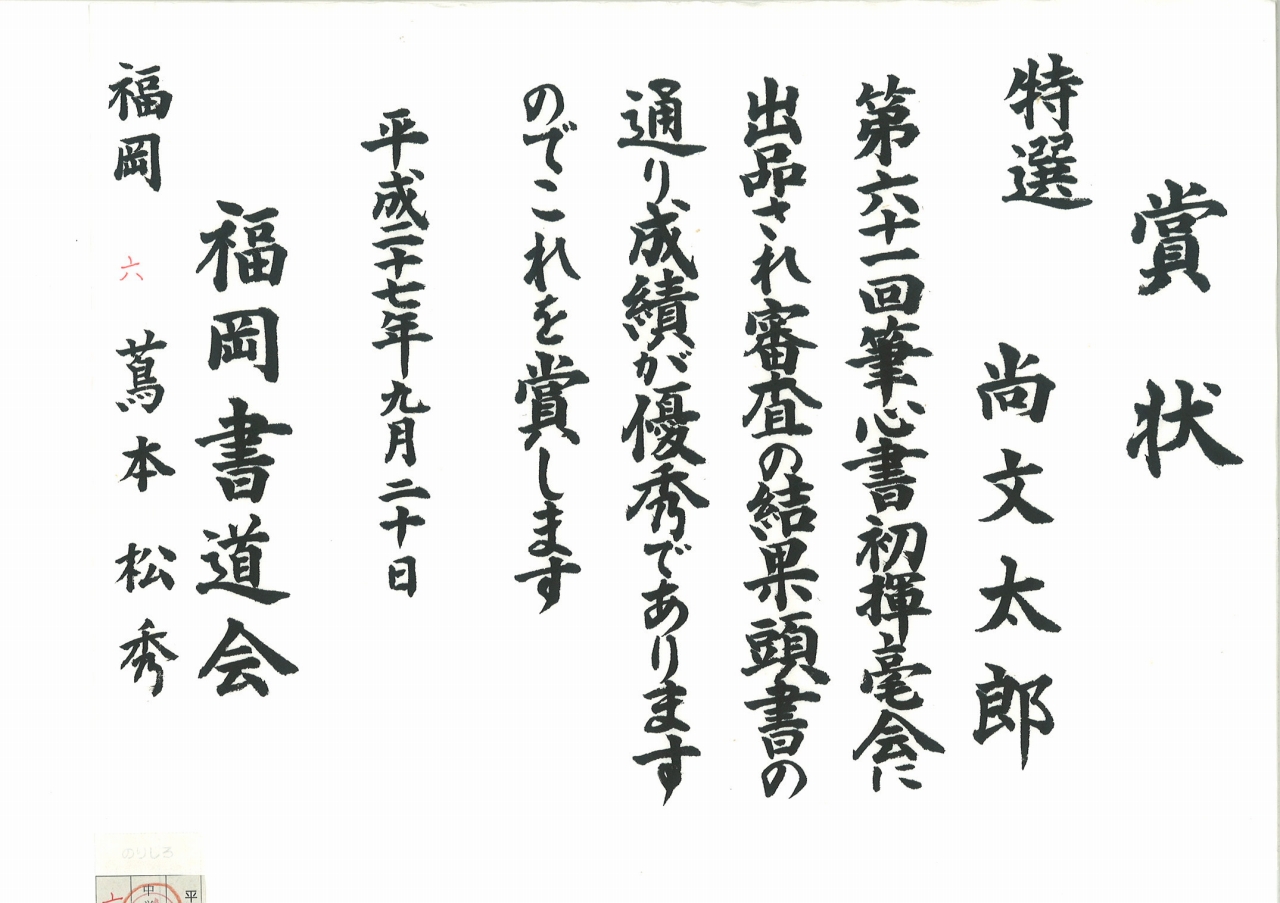 賞状
特選
尚文太郎
第六十一回筆心書初揮毫会に
出品され審査の結果頭書の
通り、成績が優秀であります
のでこれを賞します
平成二十七年九月二十日
福岡書道会
福岡 六 蔦本松秀
のりしろ
平
中